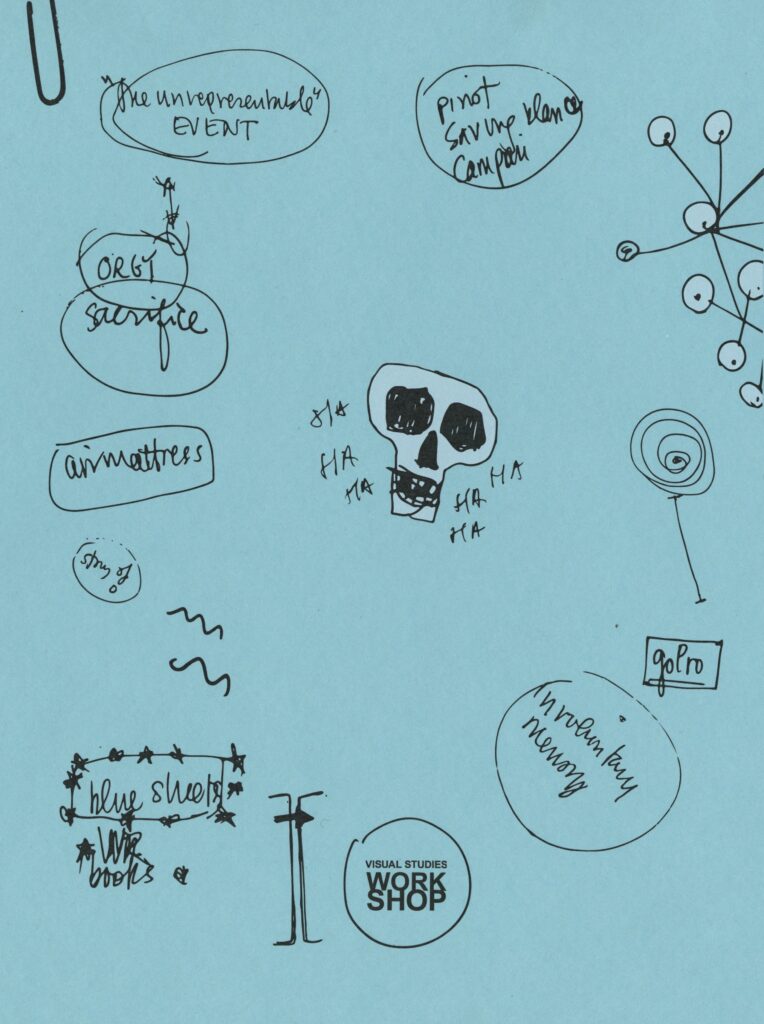 "the unrepresentable"
EVENT
pinot
saving
Campari
ORGY
sacrifice
HA
HA
HA
HA
HA
HA
airmattress
story of
o
gopro
Involuntary
Memory
blue sheets
books
VISUAL STUDIES
WORK
SHOP